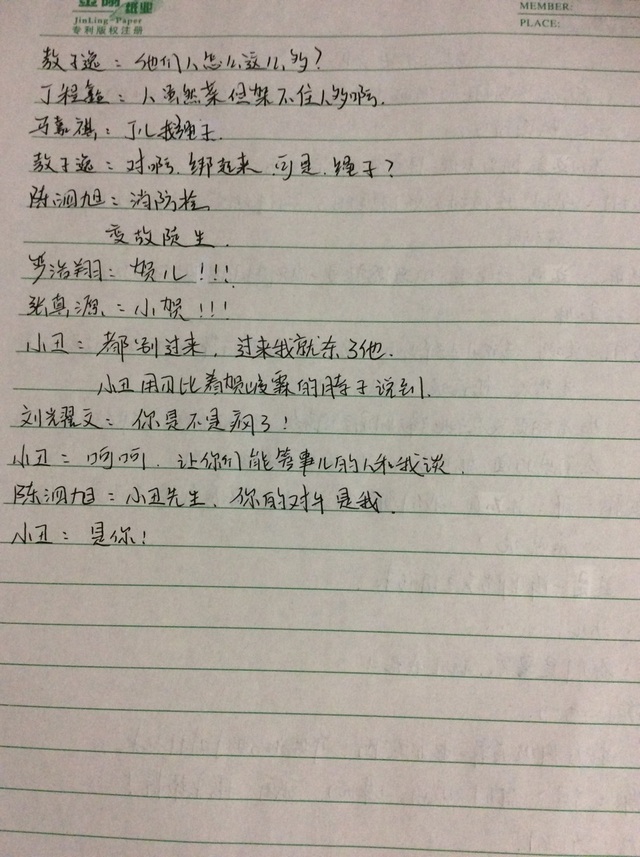 金菊纸业
JinLing-Paper
专利版权注册
MEMBER:
PLACE:
敖子逸：他们人怎么这么多？
丁程鑫：人虽然菜但架不住人多啊.
马嘉祺：丁儿找绳子.
敖子逸：对啊.绑起来.可是.绳子？
陈泗旭：消防栓
变故陡生.
贺儿！!!
张真源：小贺！!!
小丑：都别过来，过来我就杀了他.
小丑用刀比着贺峻霖的脖子说到.
刘耀文：你是不是疯了！
小丑：呵呵.让你们能管事儿的人和我谈.
陈泗旭：小丑先生，你的对手是我.
小丑：是你！